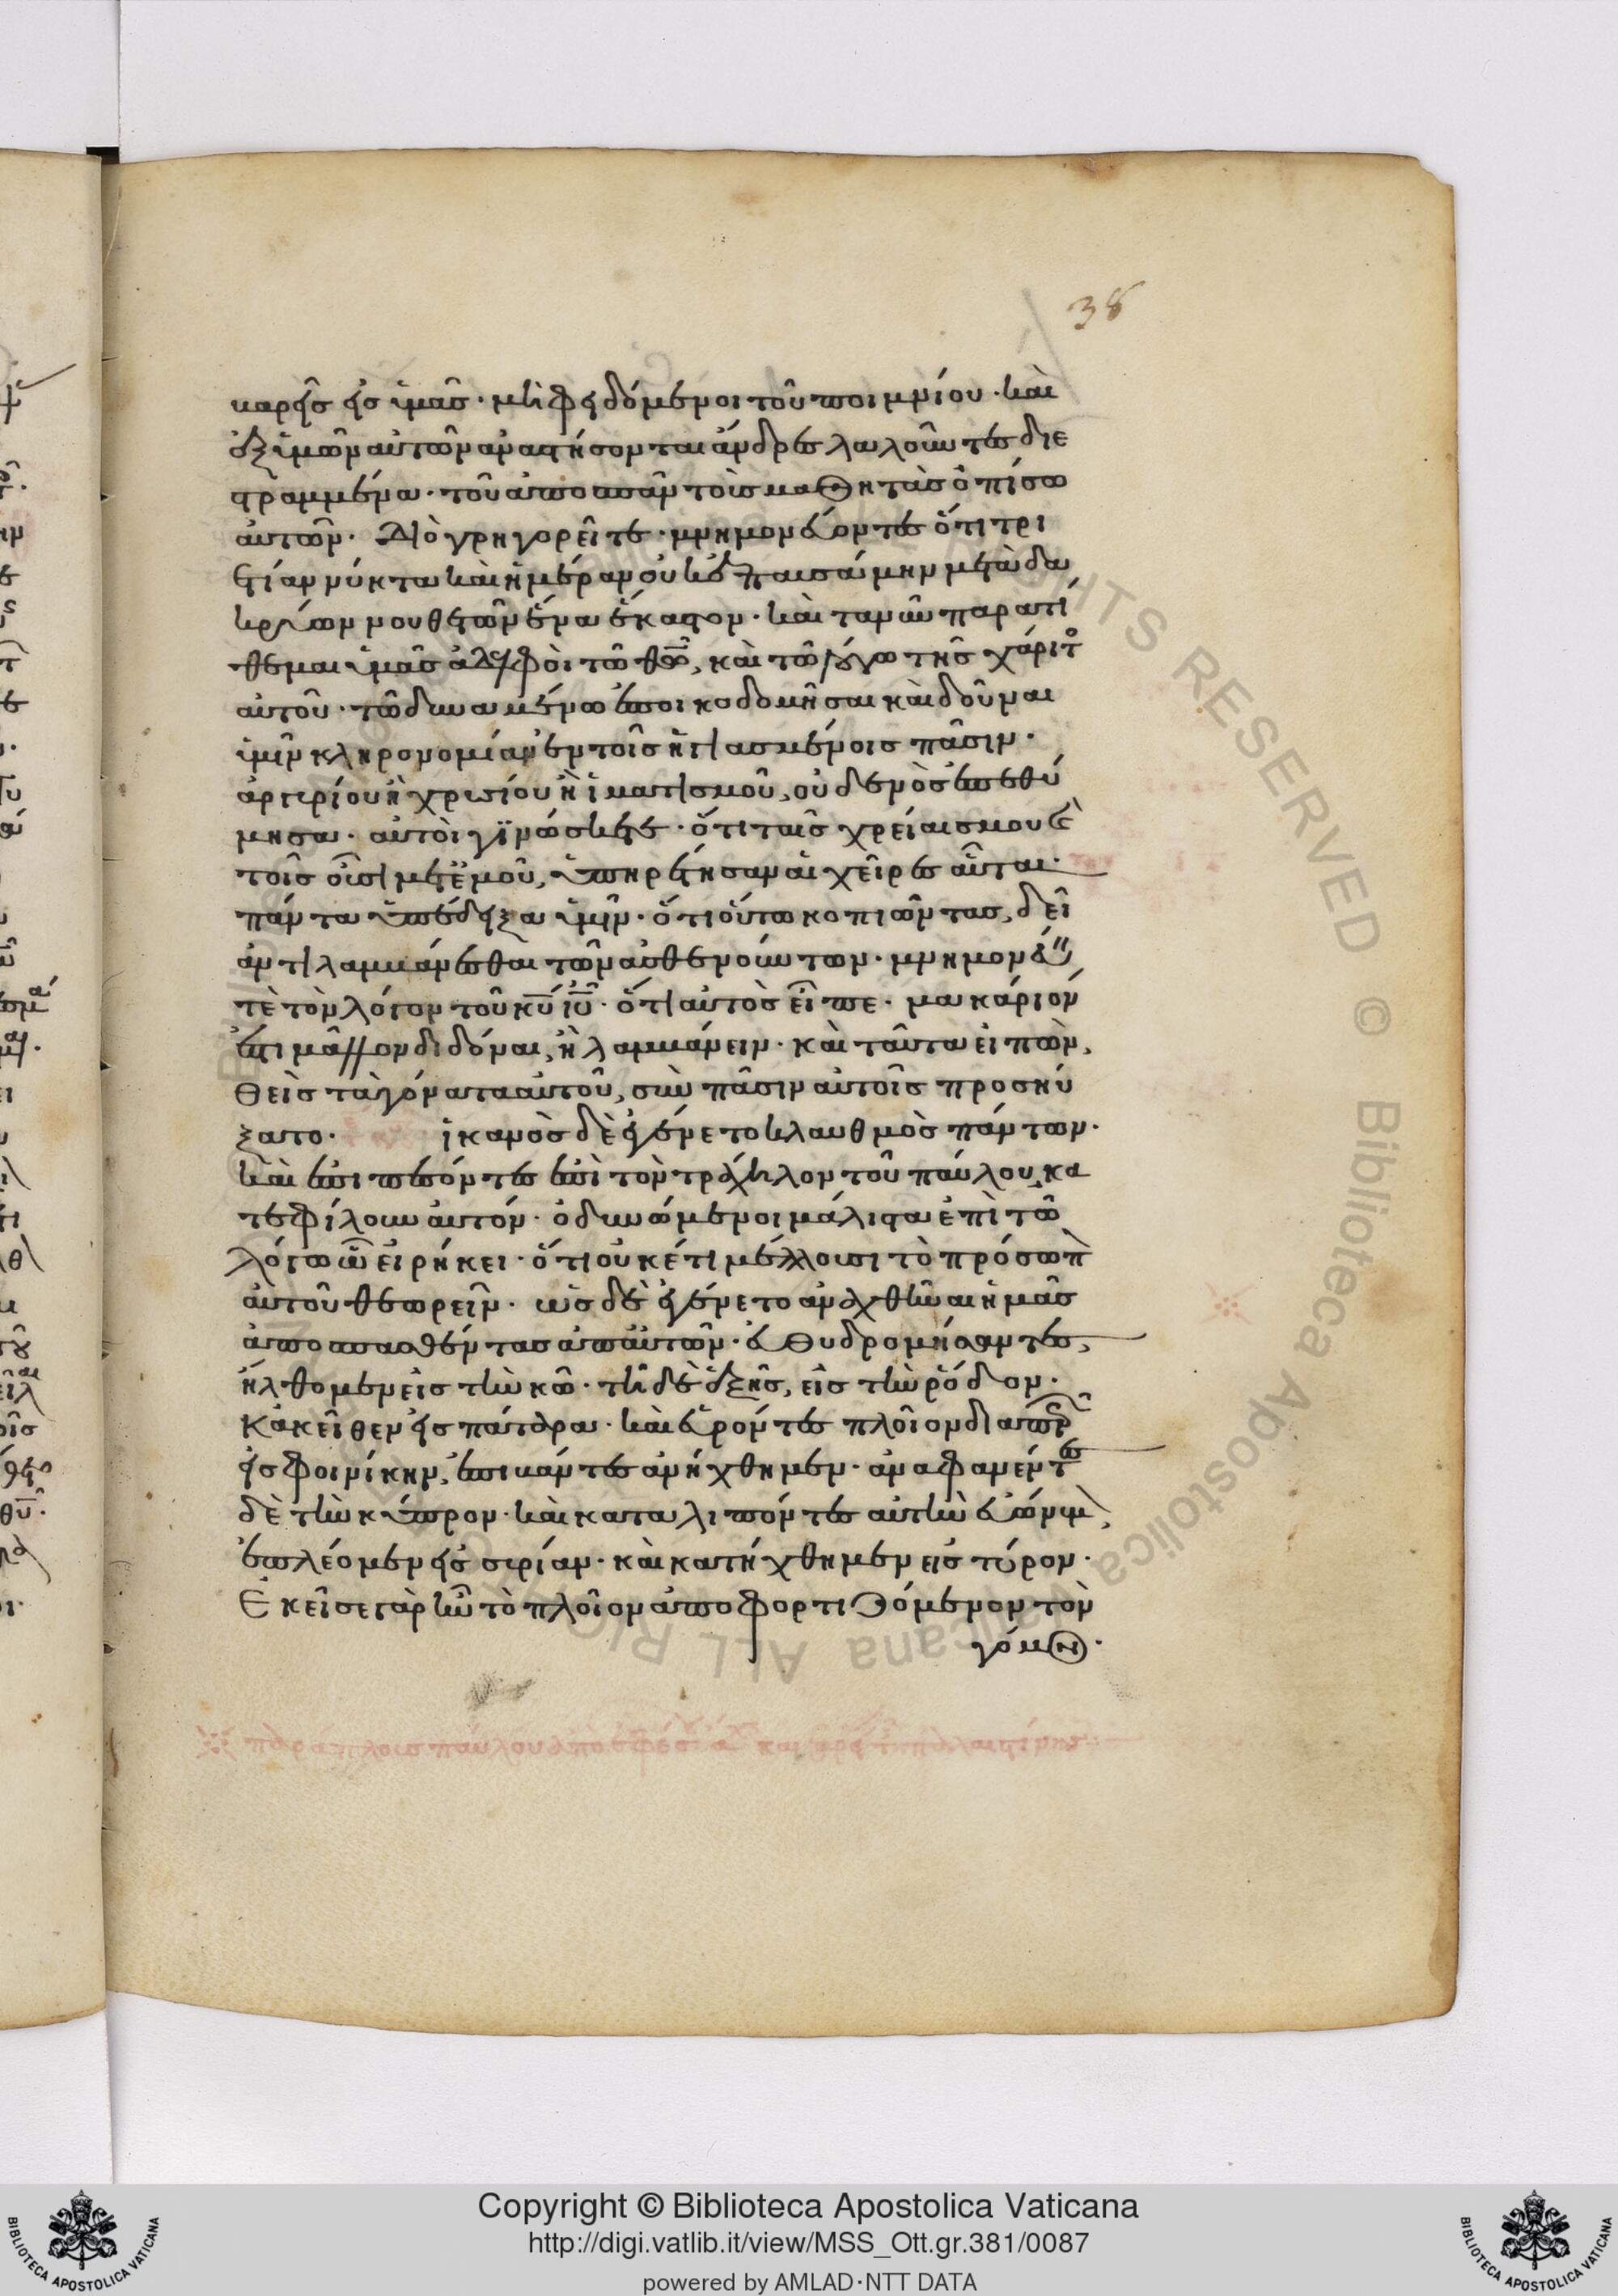 38
βαρεῖς εἰς ὑμᾶς· μὴ φειδόμενοι τοῦ ποιμνίου· καὶ
ἐξ ὑμῶν αὐτῶν ἀναστήσονται ἄνδρες λαλοῦντες διε
στραμμένα· τοῦ ἀποσπᾶν τοὺς μαθητὰς ὀπίσω
αὐτῶν· Διὸ γρηγορεῖτε· μνημονεύοντες ὅτι τρι
ετίαν νύκτα καὶ ἡμέραν οὐκ ἐπαυσάμην μετὰ δα
κρύων νουθετῶν ἕνα ἕκαστον· καὶ τανῦν παρατί
θεμαι ὑμᾶς ἀδελφοὶ τῶ θῶ, καὶ τῶ λόγω τῆς χάριτο
αὐτοῦ· τῶ δυναμένω ἐποικοδομῆσαι καὶ δοῦναι
ὑμῖν κληρονομίαν ἐν τοῖς ἡγιασμένοις πᾶσιν·
ἀργυρίου ἢ χρυσίου ἢ ἱματισμοῦ, οὐδενὸς ἐπεθύ
μησα· αὐτοὶ γϊνώσκετε· ὅτι ταῖς χρείαις μου καὶ
τοῖς οὖσι μετ ἐμοῦ, ὑπηρέτησαν αἱ χεῖρες αὗται·
πάντα ὑπέδειξα ὑμῖν· ὅτι οὕτω κοπιῶντας, δεῖ
ἀντιλαμβάνεσθαι τῶν ἀσθενούντων· μνημονεύ
τὲ τὸν λόγον τοῦ κῦ ἰῦ· ὅτι αὐτὸς εἶπε· μακάριόν
ἐστι μᾶλλον διδόναι, ἢ λαμβάνειν· καὶ ταῦτα εἰπὼν,
θεὶς τὰ γόνατα αὐτοῦ, σὺν πᾶσιν αὐτοῖς προσηύ
ξατο· ἱκανὸς δὲ ἐγένετο κλαυθμὸς πάντων·
καὶ ἐπιπεσόντες ἐπὶ τὸν τράχηλον τοῦ παύλου, κα
τεφίλουν αὐτόν· ὀδυνώμενοι μάλιστα ἐπὶ τῶ
λόγω ὧ εἰρήκει· ὅτι οὐκέτι μέλλουσι τὸ πρόσωπ
αὐτοῦ θεωρεῖν· ὡς δὲ ἐγένετο ἀναχθῆναι ἡμᾶς
ἀποσπασθέντας ἀπ αὐτῶν· εὐθυδρομήσαντες,
ἤλθομεν εἰς τὴν κῶ· τῆ δὲ ἑξῆς, εἰς τὴν ῥόδον·
κἀκεῖθεν εἰς πάταρα· καὶ εὑρόντες πλοῖον διαπερ
εἰς φοινίκην, ἐπιβάντες ἀνήχθημεν· ἀναφανέντες
δὲ τὴν κύπρον· καὶ καταλιπόντες αὐτὴν εὐώνυμ,
ἐπλέομεν εἰς συρίαν· καὶ κατήχθημεν εἰς τύρον·
Ἐκεῖσε γὰρ ἦν τὸ πλοῖον ἀποφορτιζόμενον τὸν
γόμον·